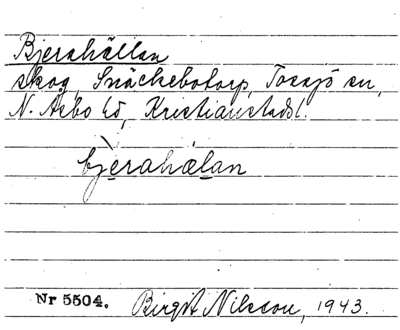 Bjerahällan
skog, Snäckebotorp, Tossjö sn,
N. Åsbo hd, Kristianstads l.
bjèrahælan
Nr 5504. Birgit Nilsson, 1943.